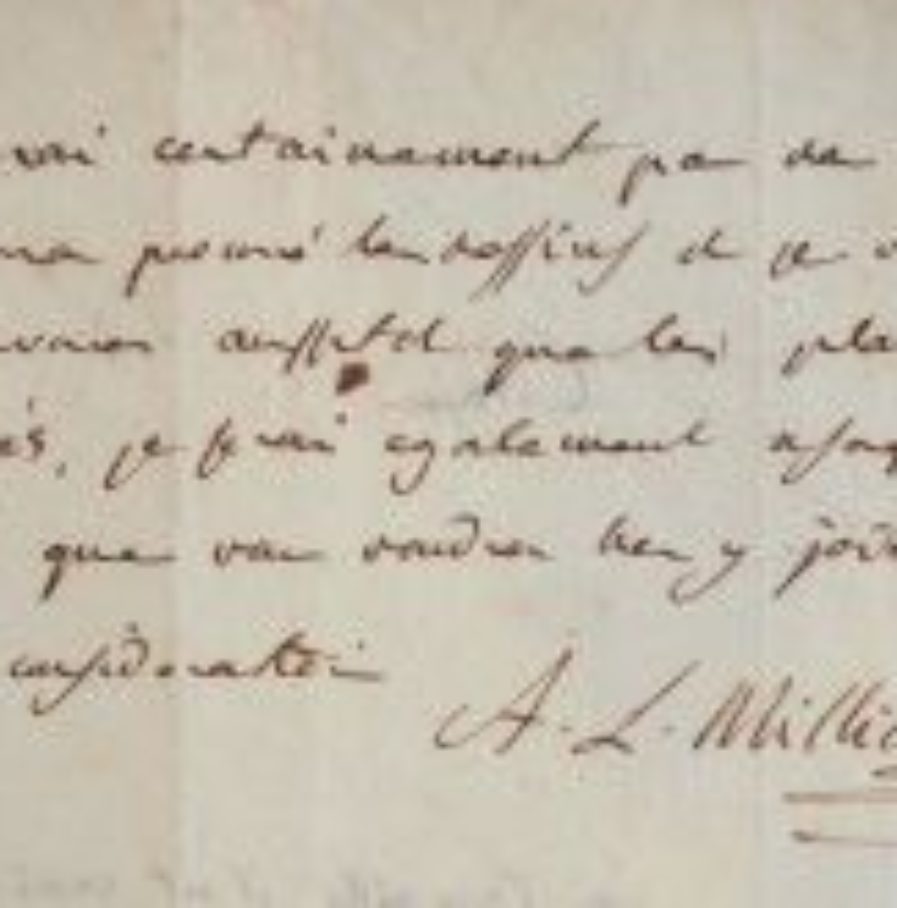 rai certainement pas de
les dessins et je
aussitot que les pla
és, je ferai egalement
que vous voudrez bien y join
consideration
A. L. Milli